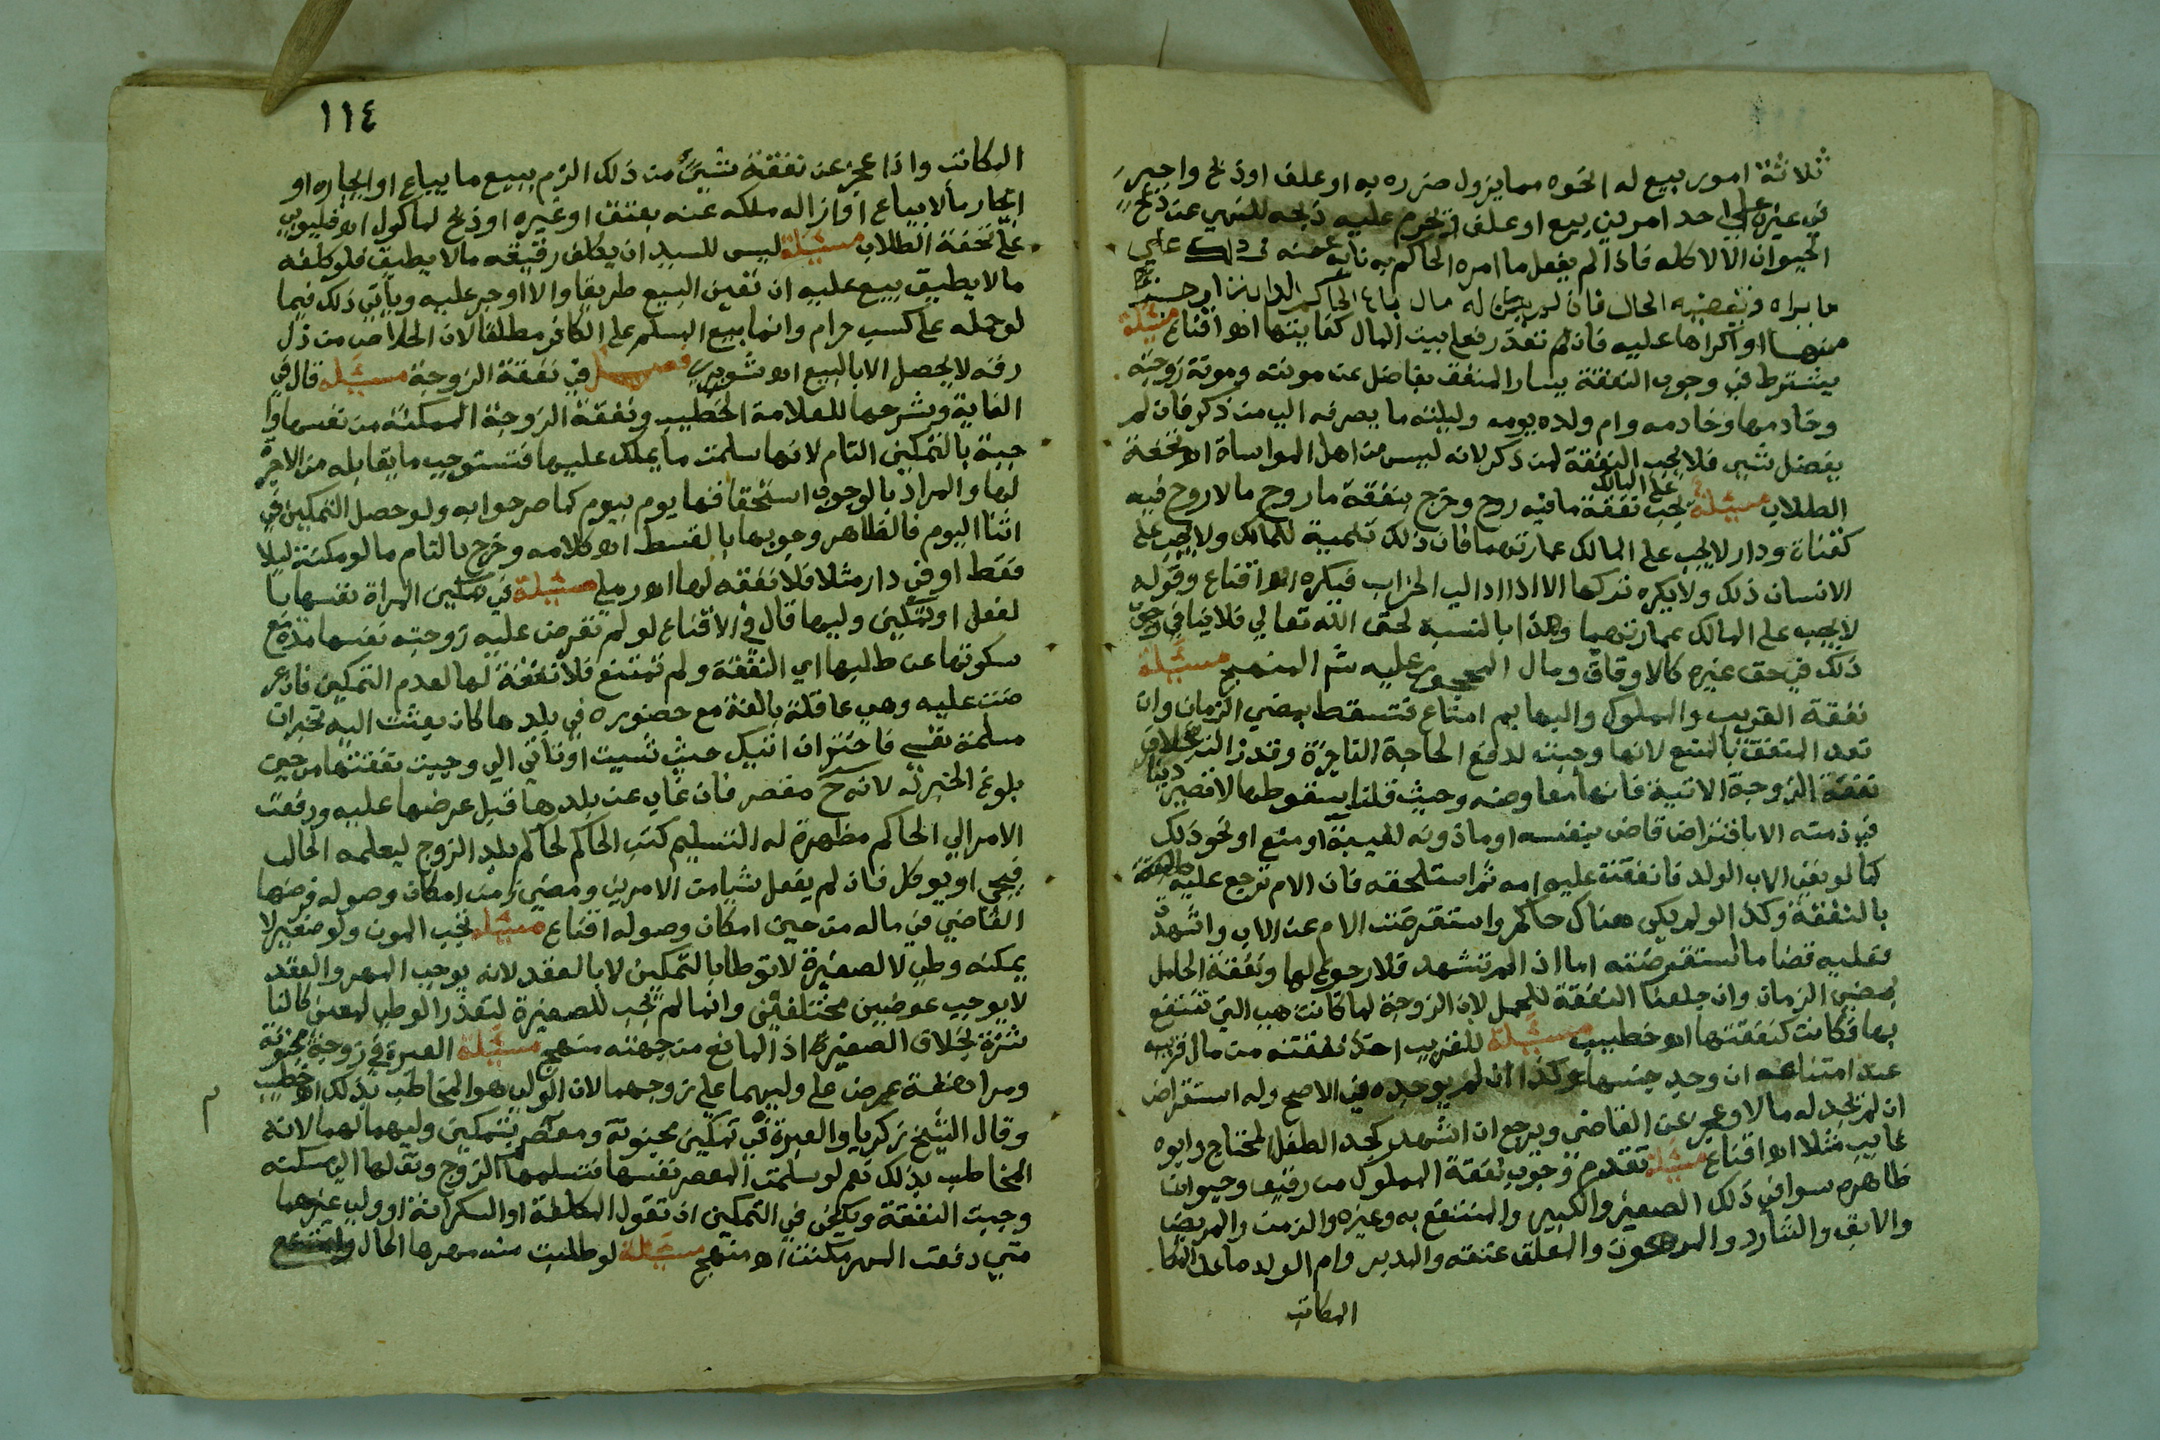 ثلاثة امور بيع له او نحوه مما يزول ضرره به او علف او ذبح واجبر
في غيره على احد امرين بيع او علف ويحرم عليه ذبحه للنهي عن ذبح
الحيوان الا لاكله فاذا لم يفعل ما امره الحاكم به ناب عنه في ذلك على
ما يراه ويقتضيه الحال فان لم يكن له مال باع الحاكم الدابة او جزء
منها او اكراها عليه فان تعذر فعلى بيت المال كفايتها اهـ اقناع مسئلة
يشترط في وجوب النفقة يسار المنفق بفاضل عن مونته ومونة زوجته
وخادمها وخادمه وام ولده يومه وليلته ما يصرفه الى من ذكر فان لم
يفضل شيء فلا تجب النفقة لمن ذكر لانه ليس من اهل المواساة اهـ تحفة
الطلاب مسئلة تجب على المالك نفقة ما فيه روح وخرج بنفقة ما روح مالا روح فيه
كقناة ودار لا يجب على المالك عمارتهما فان ذلك تنمية للمالك ولا يجب على
الانسان ذلك ولا يكره تركها الا اذا ادا الى الخراب فيكره اهـ اقناع وقوله
لا يجب على المالك عمارتهما وهذا بالنسبة لحق الله تعالى فلا ينافي وجوب
ذلك في حق غيره كالاوقاف ومال المحجور عليه شم المنهج مسئلة
نفقة القريب والمملوك والبهايم امتاع فتسقط بمضي الزمان وان
تعد المنفق بالمنع لانها وجبت لدفع الحاجة الناجزة وقد زالت بخلاف
نفقة الزوجة الاتية فانها معاوضه وحيث قلنا بسقوطها لا تصير دينا
في ذمته الا باقتراض قاض بنفسه او ماذونه لغيبة او منع او نحو ذلك
كما لو نفى الاب الولد فانفقت عليه امه ثم استلحقه فان الام ترجع عليه
بالنفقة وكذا لو لم يكن هناك حاكم واستقرضت الام عن الاب واشهدت
فعليه قضا ما استقرضته اما اذا لم تشهد فلا رجوع لها ونفقة الحامل
بمضي الزمان وان جعلنا النفقة للحمل لان الزوجة لما كانت هي التي تنتفع
بها فكانت كنفقتها اهـ خطيب مسئلة للقريب اخذ نفقته من مال قريبه
عند امتناعه ان وجد جنسها وكذا ان لم يوجده في الاصح وله استقراض
ان لم تجد له مالا وعجز عن القاضي ويرجع ان اشهد كجد الطفل المحتاج وابوه
غايب مثلا اهـ اقناع مسئلة تقدم وجوب نفقة المملوك من رقيق وحيوان
ظاهره سوا في ذلك الصغير والكبير والمنتفع به وغيره والزمن والمريض
والابق والشارد والمرهون والمعلق عتقه والمدبر وام الولد ما عدا المكا
المكاتب
١١٤
المكاتب واذا عجز عن نفقة شيء من ذلك الزم ببيع ما يباع او ايجاره او
ايجار ما لا يباع او ازالة ملكه عنه بعتق او غيره او ذبح لماكول اهـ قليوبي
على تحفة الطلاب مسئلة ليس للسيد ان يكلف رقيقه مالا يطيق فلو كلفه
مالا يطيق بيع عليه ان تعين البيع طريقا والا اوجر عليه وياتي ذلك فيما
لو حمله على كسب حرام وانما بيع المسلم على الكافر مطلقا لان الخلاص من ذل
رقه لا يحصل الا بالبيع اهـ شوبري فصل في نفقة الزوجة مسئلة قال في
الغاية وشرحها للعلامة الخطيب ونفقة الزوجة الممكنة من نفسها وا
جبة بالتمكين التام لانها سلمت ما يملك عليها فتستوجب ما يقابله من الاجرة
لها والمراد بالوجوب استحقاقها يوم بيوم كما صرحوا به ولو حصل التمكين في
اثنا اليوم فالظاهر وجوبها بالقسط اهـ كلامه وخرج بالتام ما لو مكنته ليلا
فقط او في دار مثلا فلا نفقه لها اهـ رملي مسئلة في تمكين المراة نفسها با
لفعل او تمكين وليها قال في الاقناع لو لم تعرض عليه زوجته نفسها مدة مع
سكوتها عن طلبها اي النفقة ولم تمتنع فلا نفقة لها لعدم التمكين فان عر
ضت عليه وهي عاقلة بالغة مع حضوره في بلدها كان بعثت اليه تخبره ان
مسلمة نفسي فاختر ان اتيك حيث شيت او تاتي الي وجبت نفقتها من حين
بلوغ الخبر له لانه ح مقصر فان غاب عن بلدها قبل عرضها عليه ورفعت
الامر الى الحاكم مظهرة له التسليم كتب الحاكم لحاكم بلد الزوج ليعلمه الحال
فيجي او يوكل فان لم يفعل شيا من الامرين ومضى زمن امكان وصوله فرضها
القاضي في ماله من حين امكان وصوله اقناع مسئلة تجب المون ولو صغير لا
يمكنه وطي لا لصغيرة لا توطا بالتمكين لا بالعقد لانه يوجب المهر والعقد
لا يوجب عوضين مختلفين وانما لم تجب للصغيرة لتعذر الوطي لمعنى كالنا
شزة بخلاف الصغير اذ المانع من جهته منهج مسئلة العبرة في زوجة مجنونة
ومراهقة عرض على وليهما على زوجهما لان الولي هو المخاطب بذلك اهـ خطيب
وقال الشيخ زكريا والعبرة في تمكين مجنونة ومعصر بتمكين وليهما لهما لانه
المخاطب بذلك نعم لو سلمت المعصر نفسها فتسلمها الزوج ونقلها الى مسكنه
وجبت النفقة ويكفي في التمكين ان تقول المكلفة او السكرانة او ولي غيرهما
متى دفعت المهر مكنت اهـ منهج مسئلة لو طلبت منه مهرها الحال وامتنع